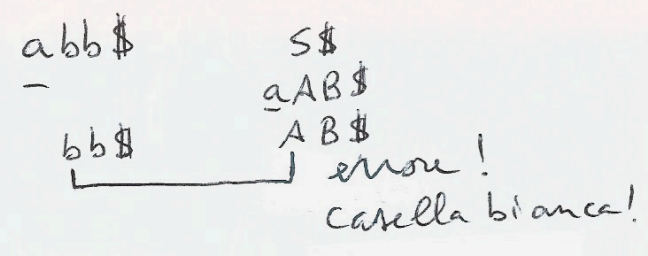 abb$ S$
aAB$
bb$ AB$
errore!
casella bianca!